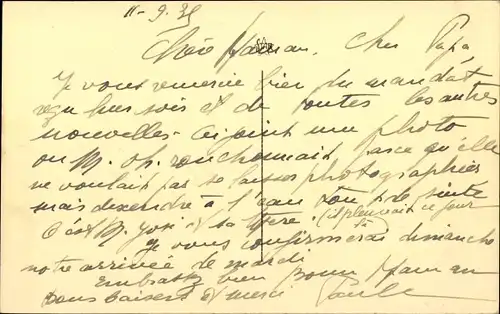 11-9.35
Chère Maman, Cher Papa
Je vous remercie bien du mandat
reçu hier soir et de toutes les autres
nouvelles. Ci joint une photo
ou M. parce qu'elle
ne voulait pas se laisser photographier
mais descendre à l'eau de suite
C'est M. et sa Mère (il pleuvait ce jour
là)
Je vous confirmerai dimanche
notre arrivée de mardi
Embrassez bien Bonne Maman
Bons baisers et merci Paule